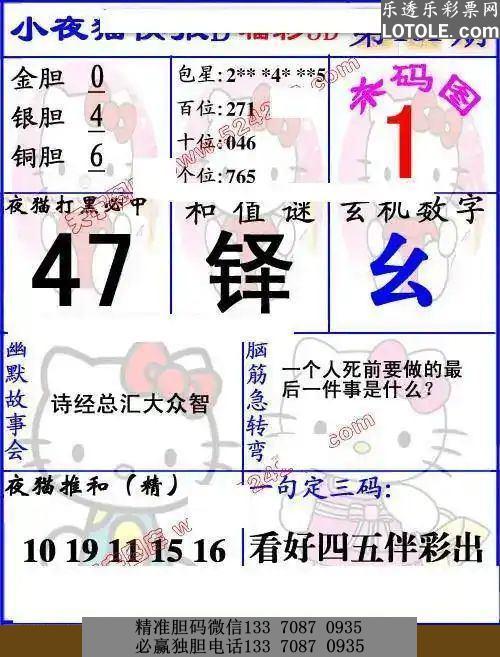 乐透乐彩票网
LOTOLE.COM
小夜猫
福彩3D
第
期
金胆 0
银胆 4
铜胆 6
包星:2** *4* **5
百位:271
十位:046
个位:765
码图
1
夜猫打黑必中
47
和值谜
铎
玄机数字
幺
幽默故事会
诗经总汇大众智
脑筋急转弯
一个人死前要做的最
后一件事是什么?
夜猫推和(精)
10 19 11 15 16
一句定三码:
看好四五伴彩出
精准胆码微信133 7087 0935
必赢独胆电话133 7087 0935